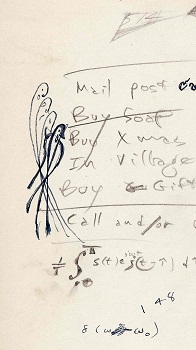 Mail post
Buy Soap
Buy Xmas
In Village
Buy Gift
Call and/or
1/T ∫ s(t)e s(t-τ) d
148
δ(ω ω₀)